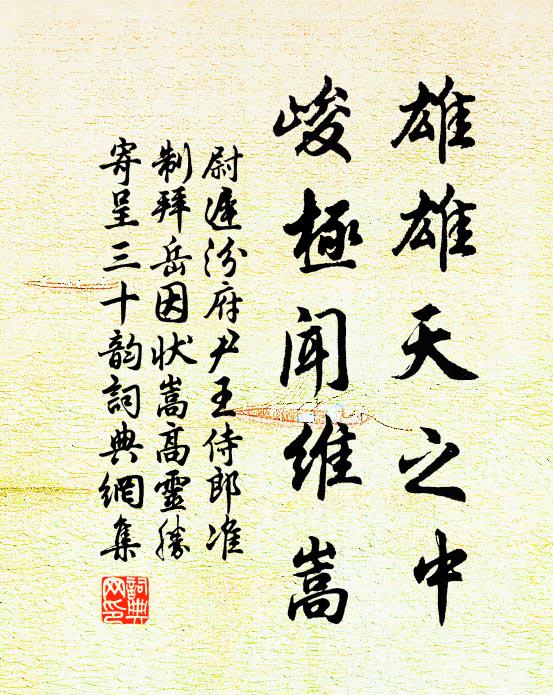 雄雄天之中
峻極聞維嵩
尉遲汾府尹王侍郎准
制拜岳因状嵩高靈勝
寄呈三十韵詞典網集
詞典网印